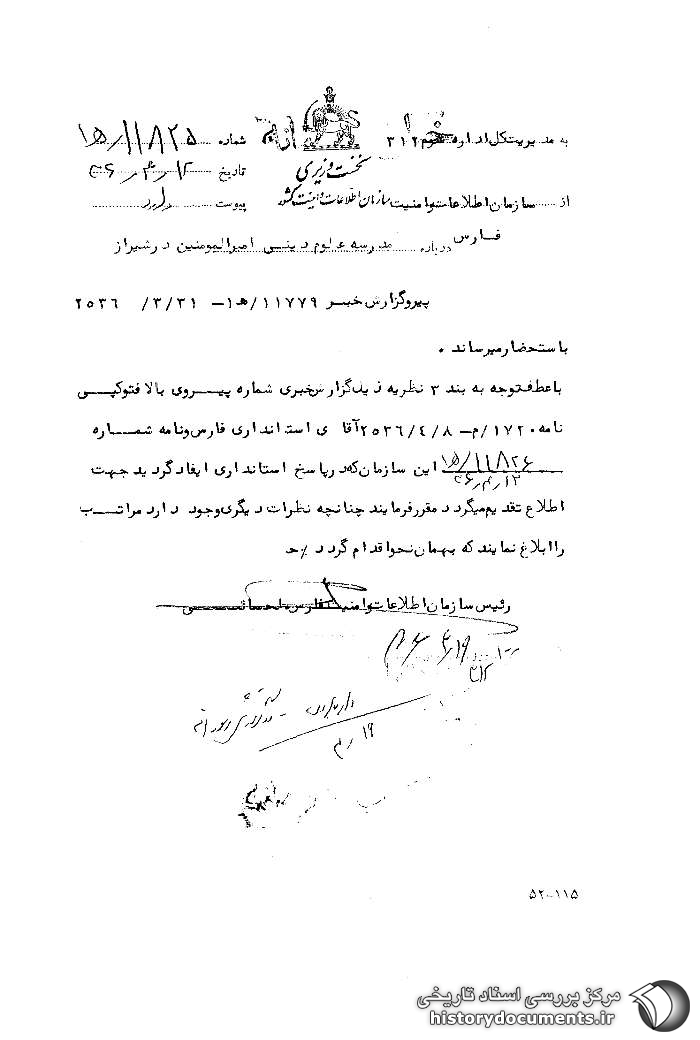 به مدیریت کل اداره سوم ۳۱۲
شماره ۱۱۸۲۵/ه‍۱
نخست وزیری
تاریخ ۳۶/۴/۱۲
از سازمان اطلاعات و امنیت سازمان اطلاعات و امنیت کشور
پیوست دارد
فارس
درباره مدرسه علوم دینی امیرالمومنین در شیراز
پیرو گزارش خبر ۱۱۷۷۹/ه‍۱ - ۲۵۳۶/۳/۳۱
باستحضار میرساند ۰
باعطف توجه به بند ۳ نظریه ذیل گزارش خبری شماره پیروی بالا فتوکپی
نامه ۱۷۲۰/م - ۲۵۳۶/۴/۸ آقای استانداری فارس و نامه شماره
۱۱۸۲۶/ه‍۱ این سازمان که در پاسخ استانداری ایفاد گردید جهت
۳۶/۴/۱۲
اطلاع تقدیم میگردد مقرر فرمایند چنانچه نظرات دیگری وجود دارد مراتب
را ابلاغ نمایند که بهمان نحو اقدام گردد ٪ حد
رئیس سازمان اطلاعات و امنیت فارس
۴/۱۹
۳۱۲
۱۹/۴
۵۲-۱۱۵
مرکز بررسی اسناد تاریخی
historydocuments.ir